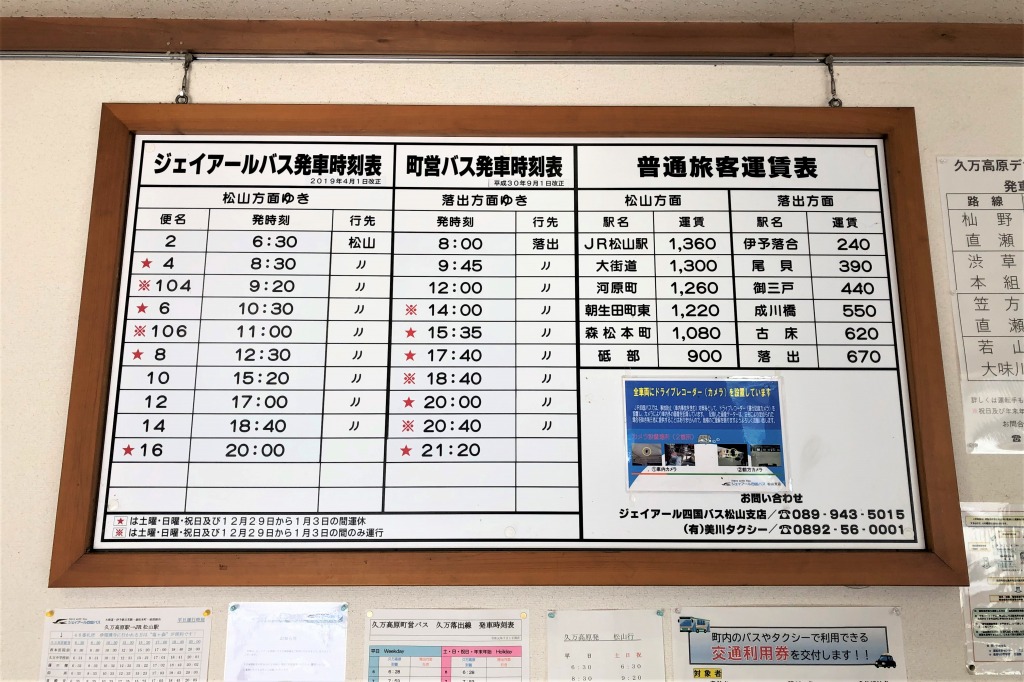 ジェイアールバス発車時刻表
2019年4月1日改正
松山方面ゆき
便名 発時刻 行先
2 6:30 松山
★ 4 8:30 〃
※ 104 9:20 〃
★ 6 10:30 〃
※ 106 11:00 〃
★ 8 12:30 〃
10 15:20 〃
12 17:00 〃
14 18:40 〃
★ 16 20:00
★は土曜・日曜・祝日及び12月29日から1月3日の間運休
※は土曜・日曜・祝日及び12月29日から1月3日の間のみ運行
町営バス発車時刻表
平成30年9月1日改正
落出方面ゆき
発時刻 行先
8:00 落出
9:45 〃
12:00 〃
※ 14:00 〃
★ 15:35 〃
★ 17:40 〃
※ 18:40 〃
★ 20:00 〃
※ 20:40 〃
★ 21:20
普通旅客運賃表
松山方面 落出方面
駅名 運賃 駅名 運賃
JR松山駅 1,360 伊予落合 240
大街道 1,300 尾貝 390
河原町 1,260 御三戸 440
朝生田町東 1,220 成川橋 550
森松本町 1,080 古床 620
砥部 900 落出 670
全車両にドライブレコーダー(カメラ)を設置しています
①車内カメラ ②前方カメラ
お問い合わせ
ジェイアール四国バス松山支店/☎089-943-5015
(有)美川タクシー/☎0892-56-0001
久万高原デ
発車
路線
杣野
直瀬
渋草
本組
笠方
直瀬
若山
大味川
久万高原駅→JR松山駅
久万高原町営バス 久万落出線 発車時刻表
平日 Weekday 土・日・祝日・年末年始 Holiday
久万高原発 松山行
平日 土日祝
6:30 6:30
町内のバスやタクシーで利用できる
交通利用券を交付します!!
対象者